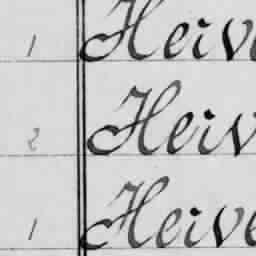 1 Heive
2 Heiv
1 Heive